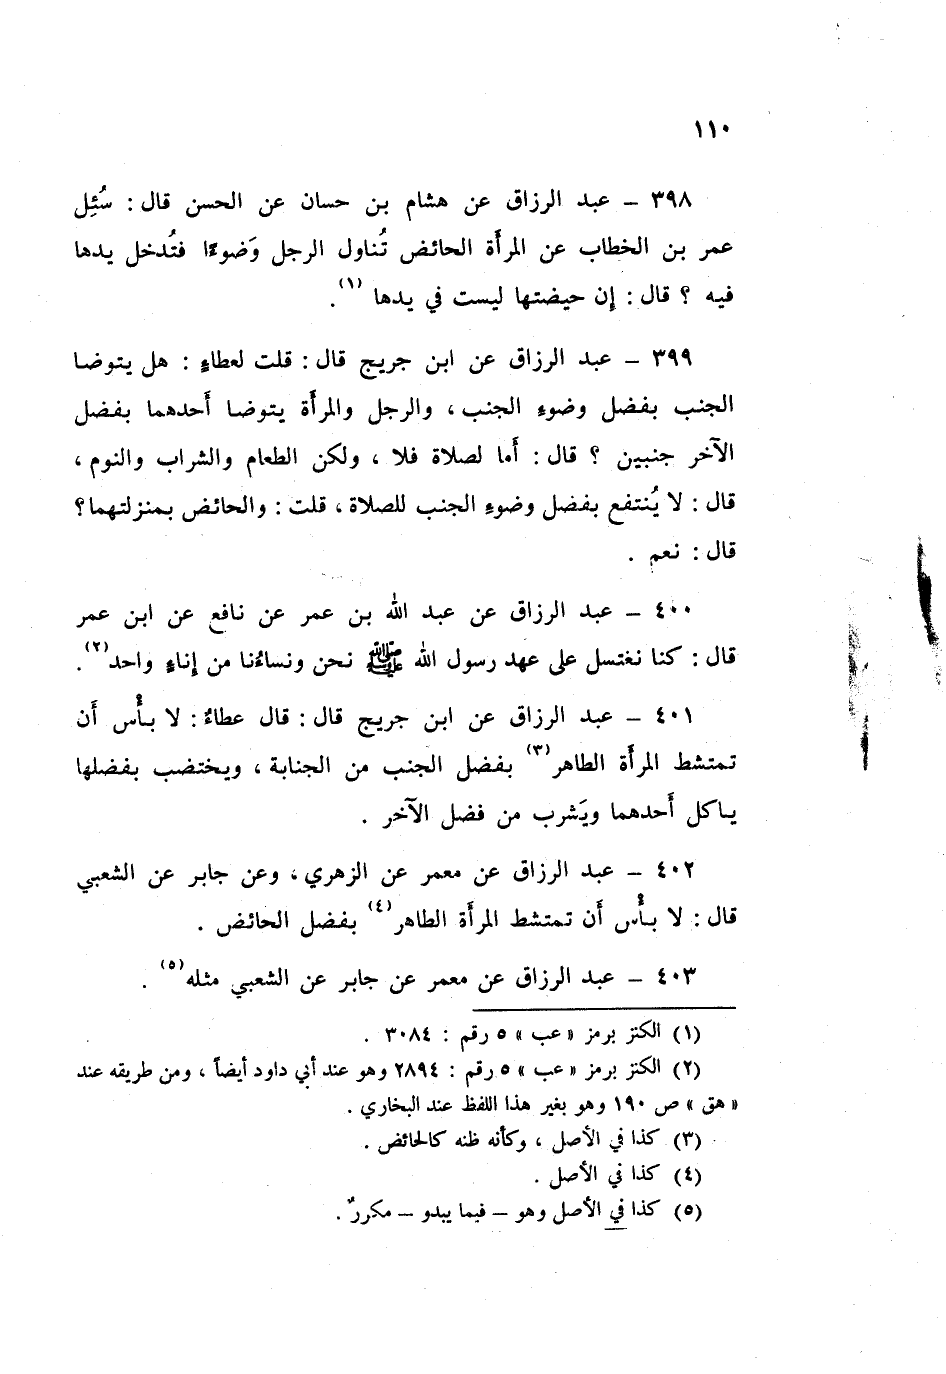 ١١٠
٣٩٨ – عبد الرزاق عن هشام بن حسان عن الحسن قال : سُئِل
عمر بن الخطاب عن المرأة الحائض تُناول الرجل وَضوءًا فتُدخل يدها
فيه ؟ قال : إن حيضتها ليست في يدها (١) .
٣٩٩ – عبد الرزاق عن ابن جريج قال : قلت لعطاءٍ : هل يتوضا
الجنب بفضل وضوءِ الجنب ، والرجل والمرأة يتوضا أحدهما بفضل
الآخر جنبين ؟ قال : أما لصلاة فلا ، ولكن الطعام والشراب والنوم ،
قال : لا يُنتفع بفضل وضوءِ الجنب للصلاة ، قلت : والحائض بمنزلتهما ؟
قال : نعم .
٤٠٠ – عبد الرزاق عن عبد الله بن عمر عن نافع عن ابن عمر
قال : كنا نغتسل على عهد رسول الله ﷺ نحن ونساءُنا من إناءٍ واحد (٢) .
٤٠١ – عبد الرزاق عن ابن جريج قال : قال عطاءٌ : لا بأْس أَن
تمتشط المرأة الطاهر (٣) بفضل الجنب من الجنابة ، ويختضب بفضلها
ياكل أَحدهما ويَشرب من فضل الآخر .
٤٠٢ – عبد الرزاق عن معمر عن الزهري ، وعن جابر عن الشعبي
قال : لا بأْس أَن تمتشط المرأة الطاهر (٤) بفضل الحائض .
٤٠٣ – عبد الرزاق عن معمر عن جابر عن الشعبي مثله (٥) .
(١) الكنز برمز « عب » ٥ رقم : ٣٠٨٤ .
(٢) الكنز برمز « عب » ٥ رقم : ٢٨٩٤ وهو عند أبي داود أيضاً ، ومن طريقه عند
« هق » ص ١٩٠ وهو بغير هذا اللفظ عند البخاري .
(٣) كذا في الأصل ، وكأنه ظنه كالحائض .
(٤) كذا في الأصل .
(٥) كذا في الأصل وهو – فيما يبدو – مكررٌ .